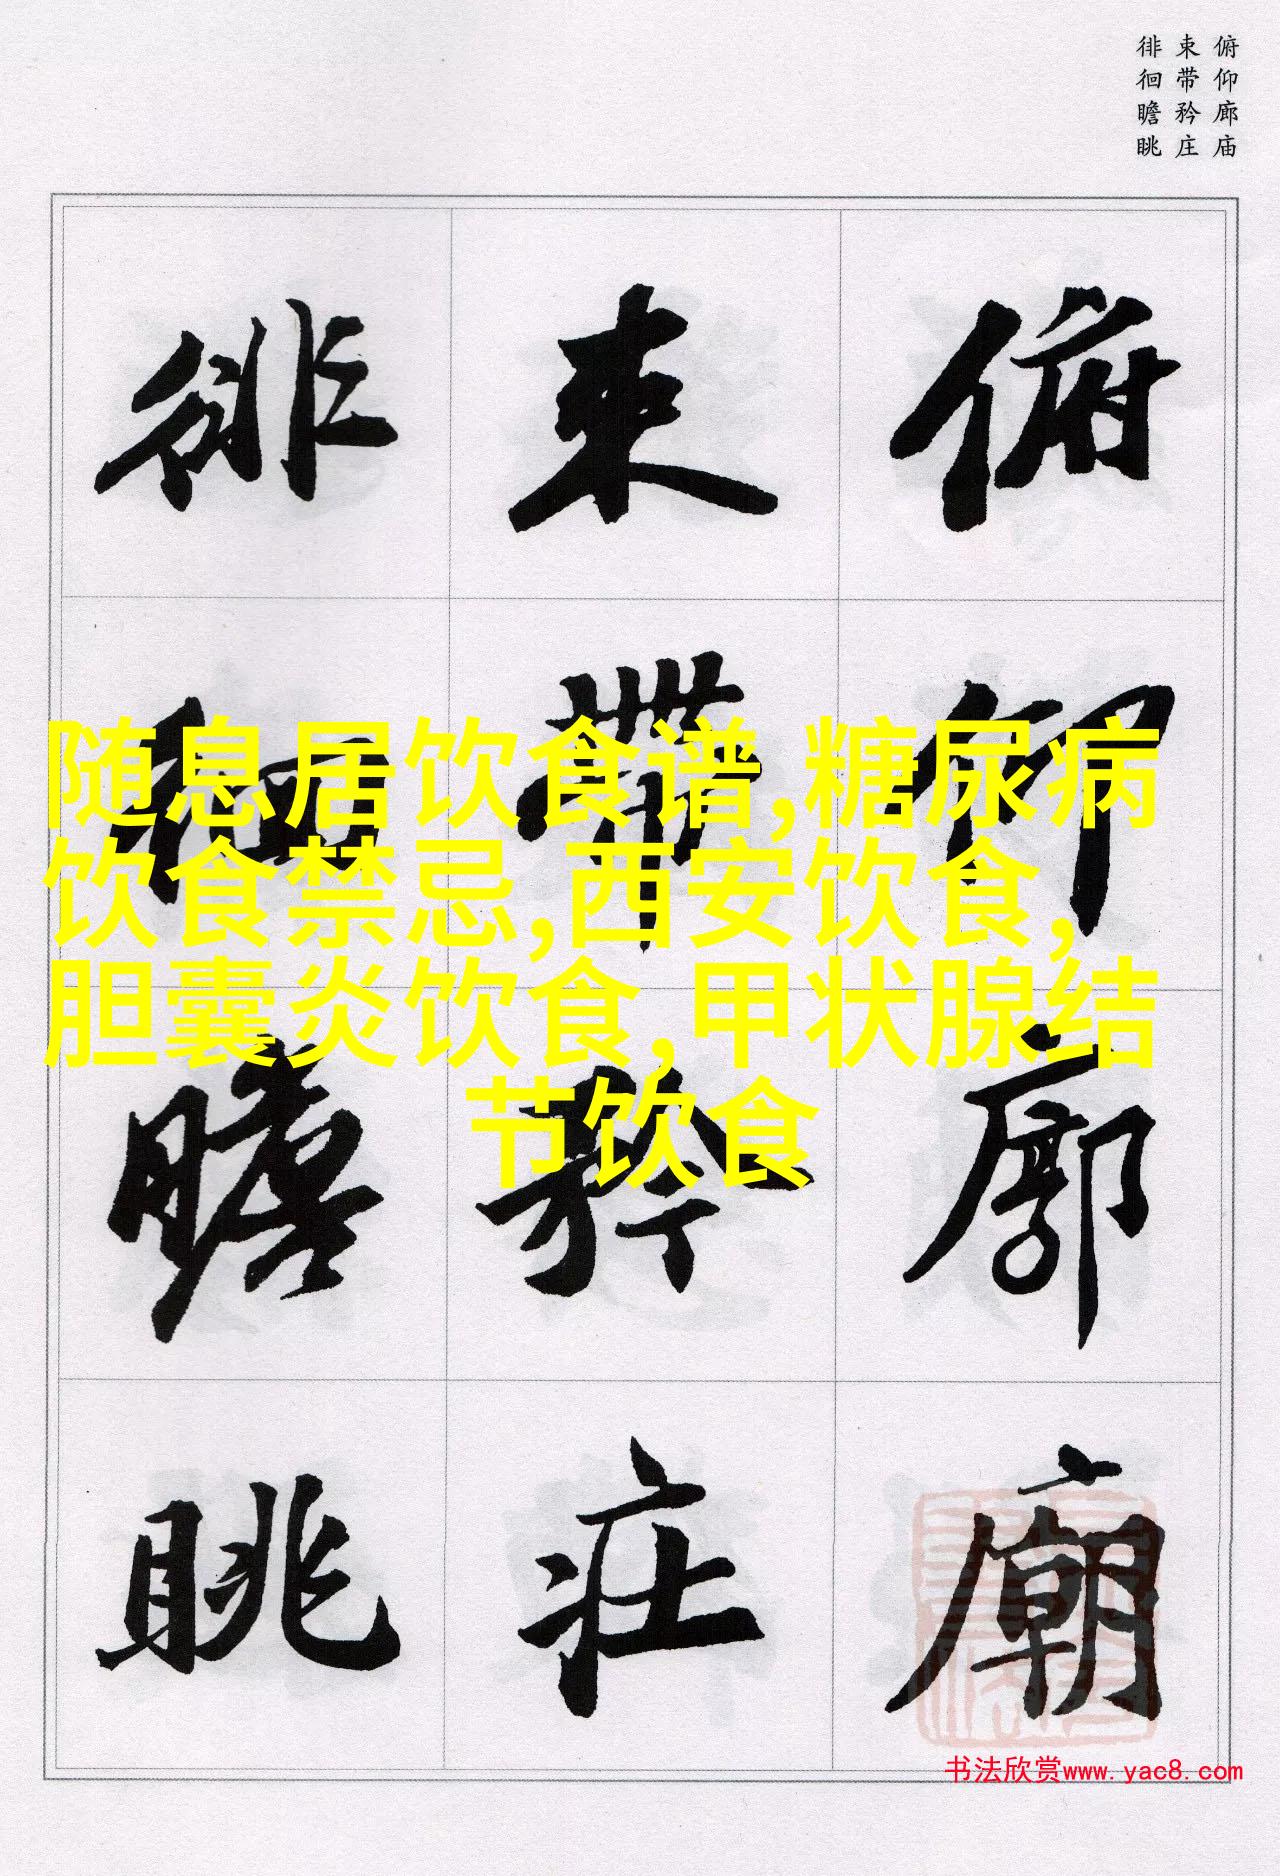 俯仰廊庙
束带矜庄
徘徊瞻眺
俯仰廊廟
束帶矜莊
徘徊瞻眺
随息居饮食谱,糖尿病
饮食禁忌,西安饮食,
胆囊炎饮食,甲状腺结
节饮食
书法欣赏www.yac8.com